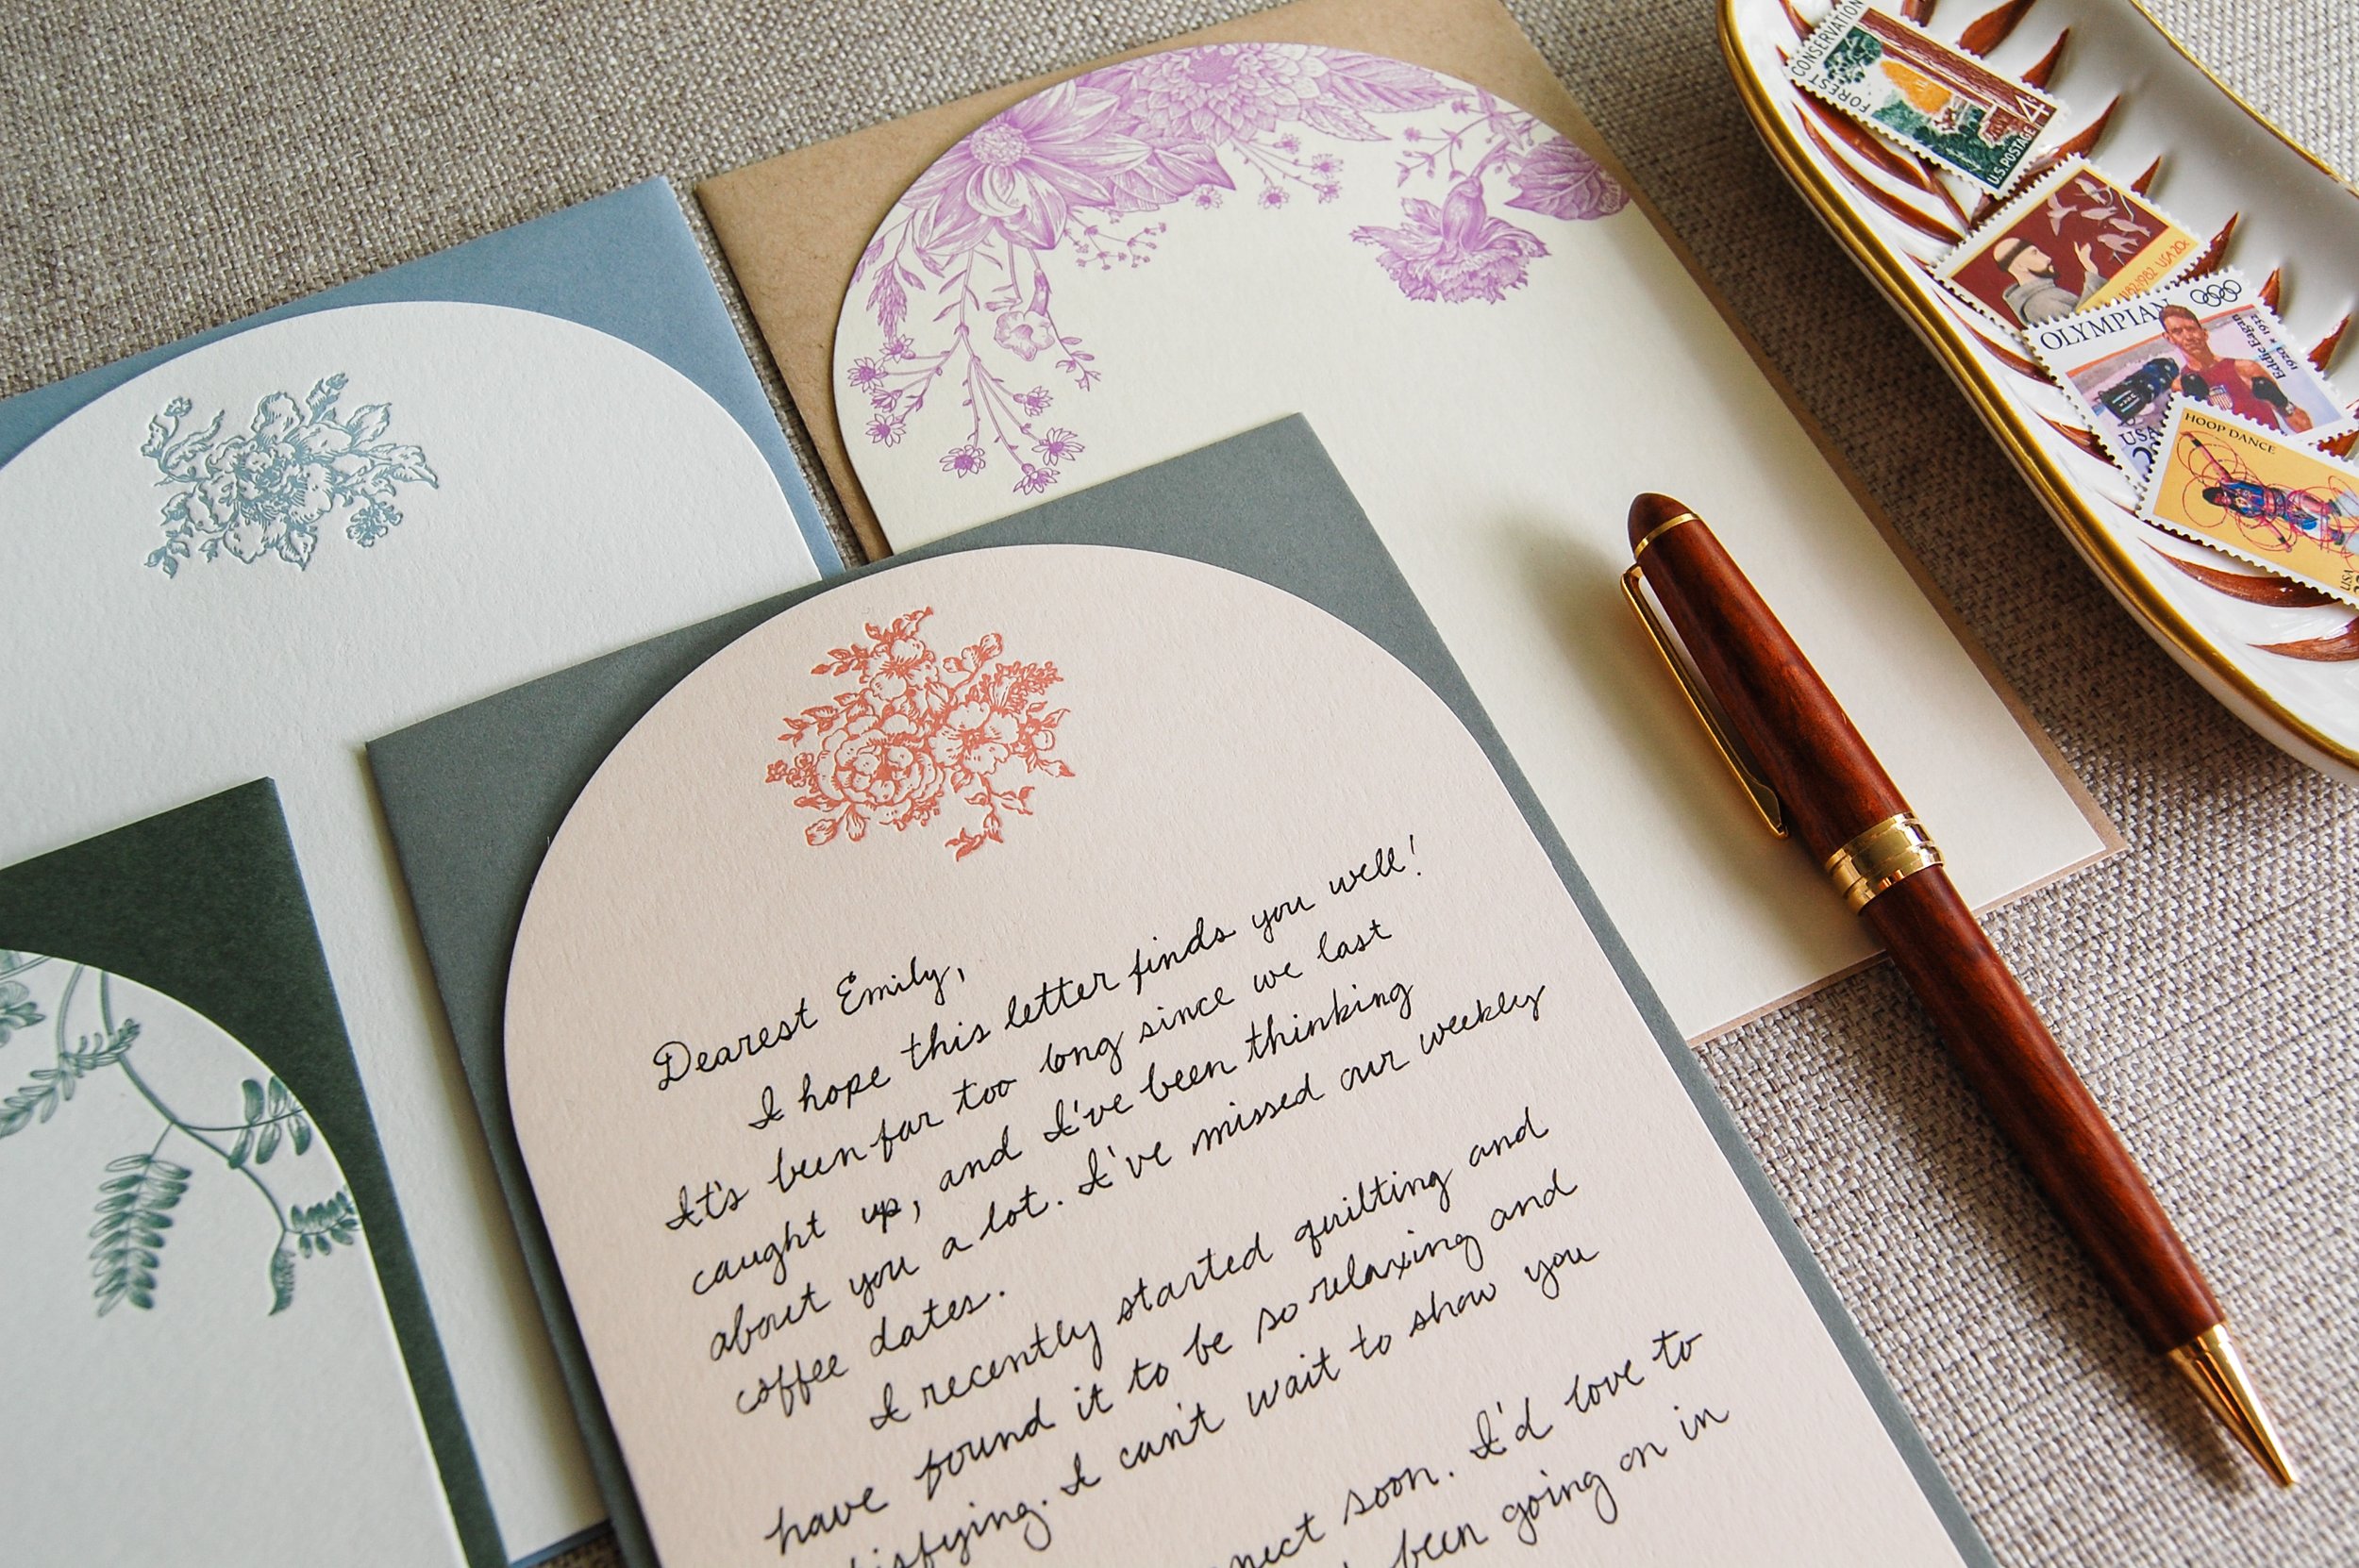 Dearest Emily,
I hope this letter finds you well!
It's been far too long since we last
caught up, and I've been thinking
about you a lot. I've missed our weekly
coffee dates.
I recently started quilting and
have found it to be so relaxing and
I can't wait to show you
soon. I'd love to
been going on in
FOREST CONSERVATION
4¢
U.S. POSTAGE
1182-1982 USA 20c
OLYMPIAN
Eddie Eagan
1920 * 1932
USA
HOOP DANCE
USA